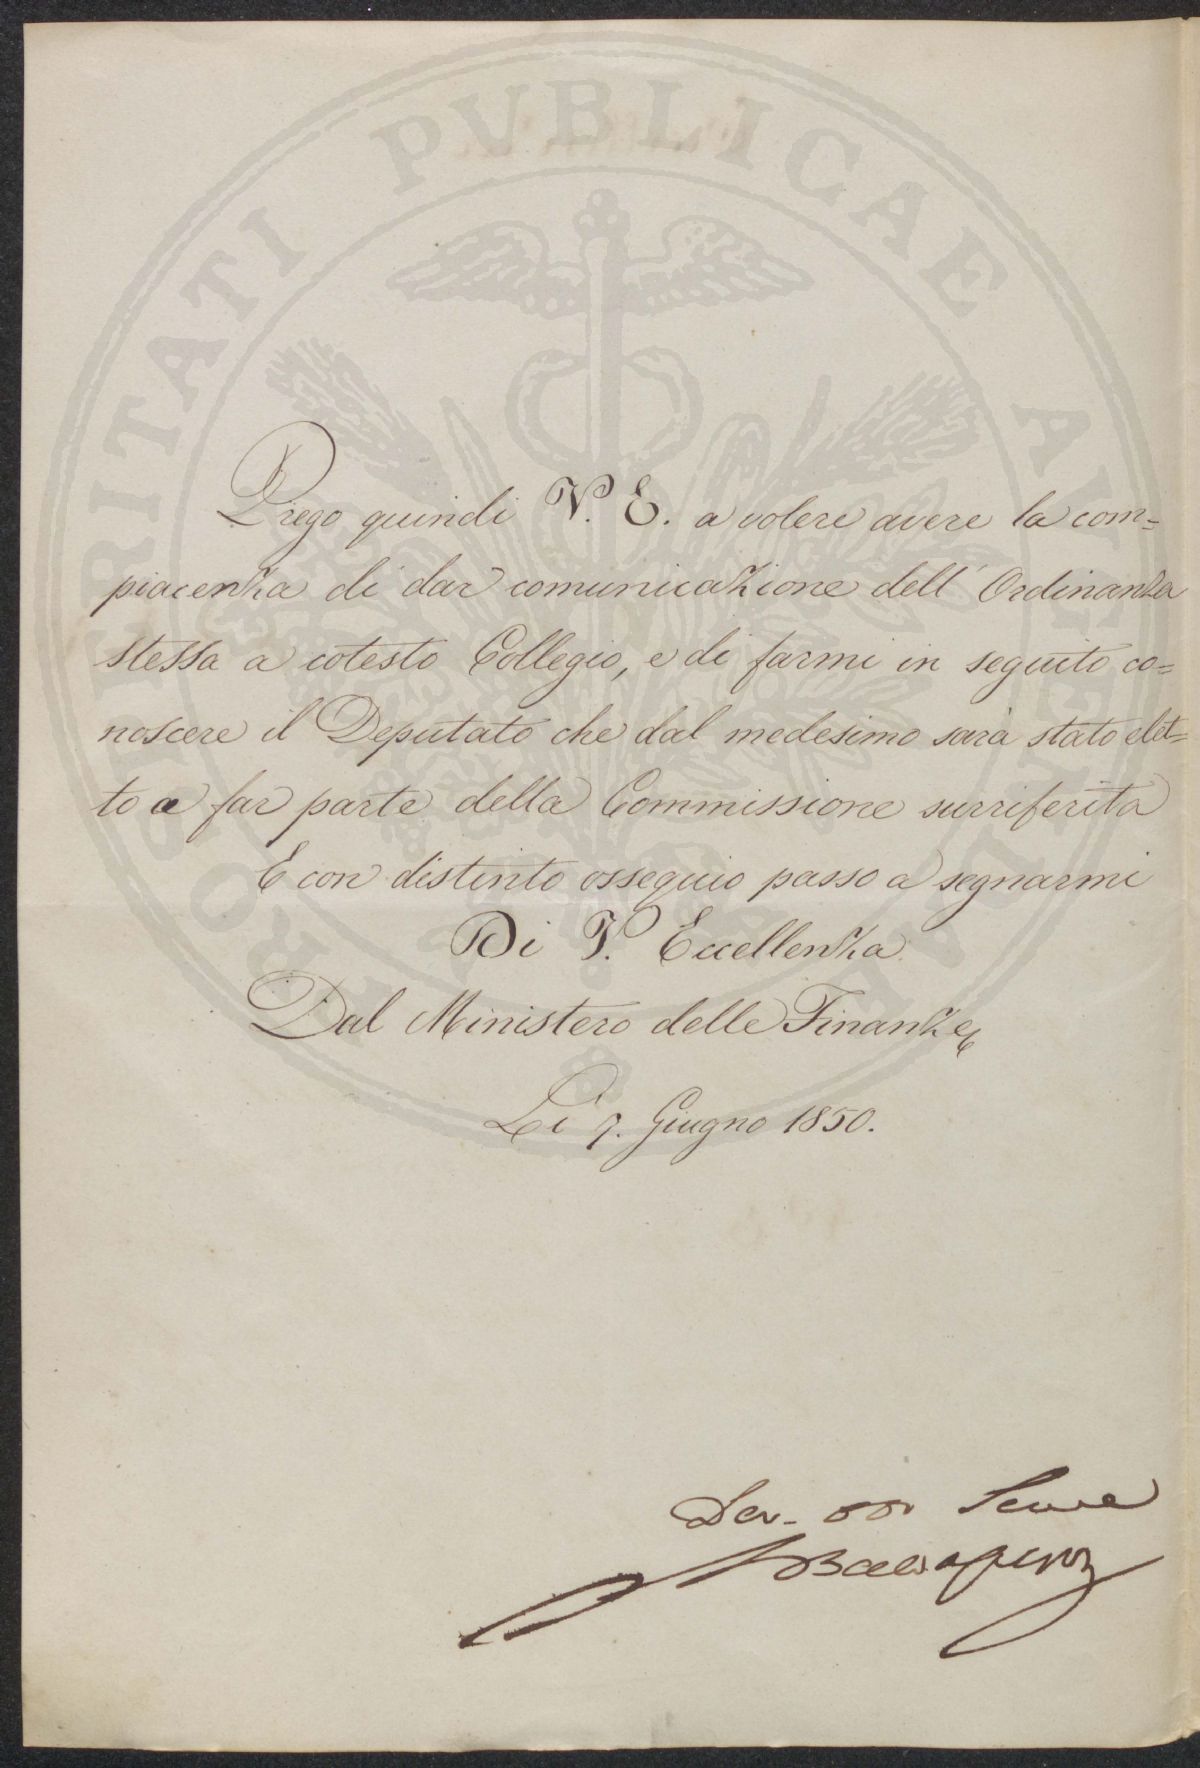 Prego quindi V. E. a volere avere la com=
piacenza di dar comunicazione dell' Ordinanza
stessa a cotesto Collegio, e di farmi in seguito co=
noscere il Deputato che dal medesimo sarà stato elet=
to a far parte della Commissione surriferita
E con distinto ossequio passo a segnarmi
Di V. Eccellenza
Dal Ministero delle Finanze
Li 7. Giugno 1850.